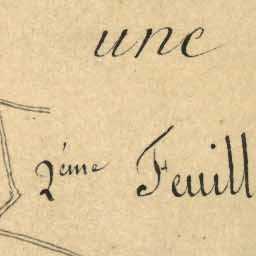 une
2ème Feuill